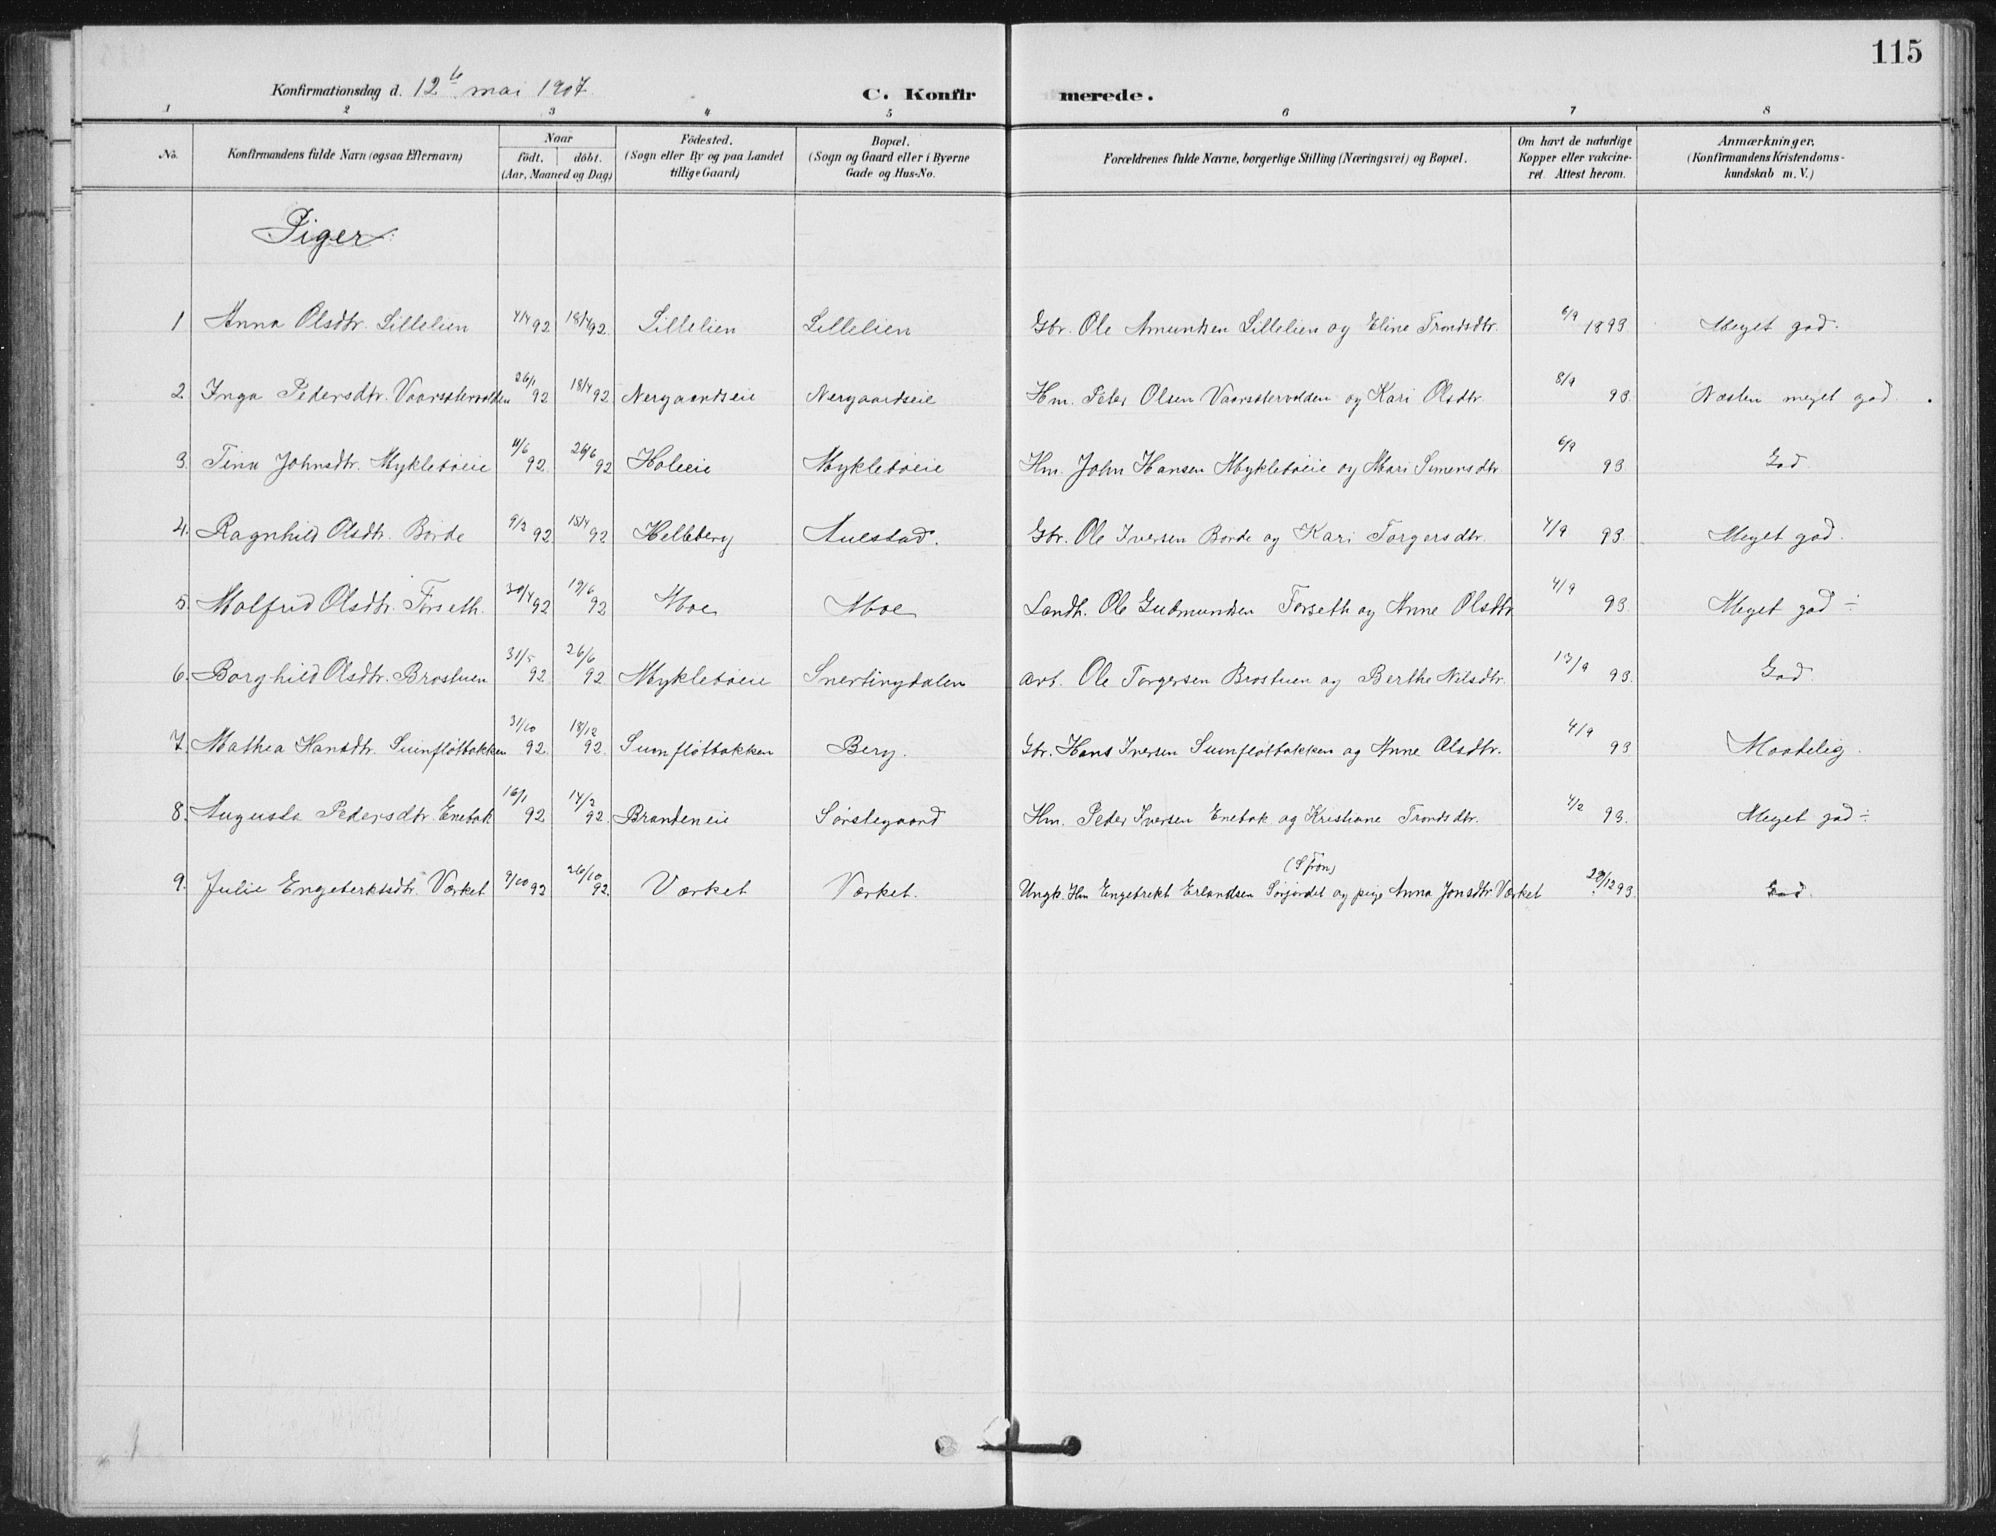 115
Konfirmationsdag d. 12te mai 1907.
C. Konfirmerede.
1 2 3 4 5 6 7 8
No. Konfirmandens fulde Navn (ogsaa Efternavn) Naar født. døbt. (Aar, Maaned og Dag) Födested. (Sogn eller By og paa Landet tillige Gaard) Bopæl. (Sogn og Gaard eller i Byerne Gade og Hus-No. Forældrenes fulde Navne, borgerlige Stilling (Næringsvei) og Bopæl. Om havt de naturlige Kopper eller vakcineret. Attest herom. Anmærkninger. (Konfirmandens Kristendomskundskab m. V.)
Piger
1 Anna Olsdtr. Lillelien 4/4 92 18/4 92. Lillelien Lillelien Gbr. Ole Amundsen Lillelien og Eline Trondsdtr. 6/9 1893 Meget god.
2 Inga Pedersdtr. Vaarsætervolden 26/1 92 18/4 92 Nergaardseie Nergaardseie Hm. Peter Olsen Vaarsætervolden og Kari Olsdtr. 8/9 93 Næsten meget god.
3. Tina Johnsdtr. Mykleböeie 11/6 92. 26/6 92 Holeeie Mykleböeie Hm. John Hansen Mykleböeie og Mari Simensdtr 6/9 93 God
4. Ragnhild Olsdtr. Börde 9/2 92 18/4 92 Helleberg Aulestad. Gbr. Ole Iversen Börde og Kari Torgersdtr. 4/9 93. Meget god.
5. Malfrid Olsdtr. Forseth. 30/4 92 19/6 92 Moe Moe Landh. Ole Gudmundsen Forseth og Anne Olsdtr 4/9 93. Meget god ÷
6. Borghild Olsdtr. Brostuen 31/5 92 26/6 92 Mykleböeie Snertingdalen arb. Ole Torgersen Brostuen og Berthe Nilsdtr. 13/9 93. God.
7. Mathea Hansdtr. Svinfløtbakken 31/10 92. 18/12 92. Svinfløtbakken Berg. Gbr. Hans Iversen Svinfløtbakken og Anne Olsdtr. 4/9 93 Maadelig.
8. Augusta Pedersdtr. Enebak 16/1 92 14/2 92. Brandeneie Sørstegaard Hm. Peder Iversen Enebak og Kristiane Trondsdtr. 4/2 93. Meget god ÷
(S Fron)
9. Julie Engebrektsdtr. Værket 9/10 92 26/10 92. Værket Værket. Ungk. Hm Engebrekt Erlandsen Sørjordet og pige Anna Jonsdtr Værket 29/12 93. God.